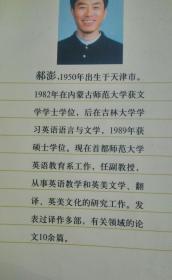 郝澎,1950年出生于天津市。
1982年在内蒙古师范大学获文
学学士学位，后在吉林大学学
习英语语言与文学，1989年获
硕士学位。现在首都师范大学
英语教育系工作，任副教授，
从事英语教学和英美文学、翻
译、英美文化的研究工作。发
表过译作多部，有关领域的论
文10余篇。